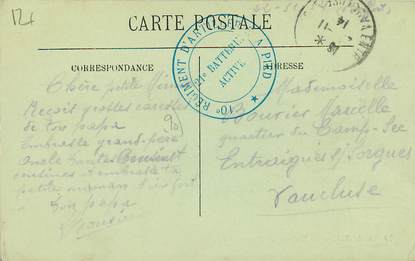 CARTE POSTALE
CORRESPONDANCE
ADRESSE
10e RÉGIMENT D'ARTILLERIE A PIED
21e BATTERIE
ACTIVE
Chère petite
Reçois grosses caresses
de ton papa
Embrasse grand-père
Oncle Tantes
cousines et embrasse ta
petite maman bien fort
Ton papa
Mademoiselle
Marcelle
quartier du Camp-Sec
Entraigues s/Sorgues
Vaucluse